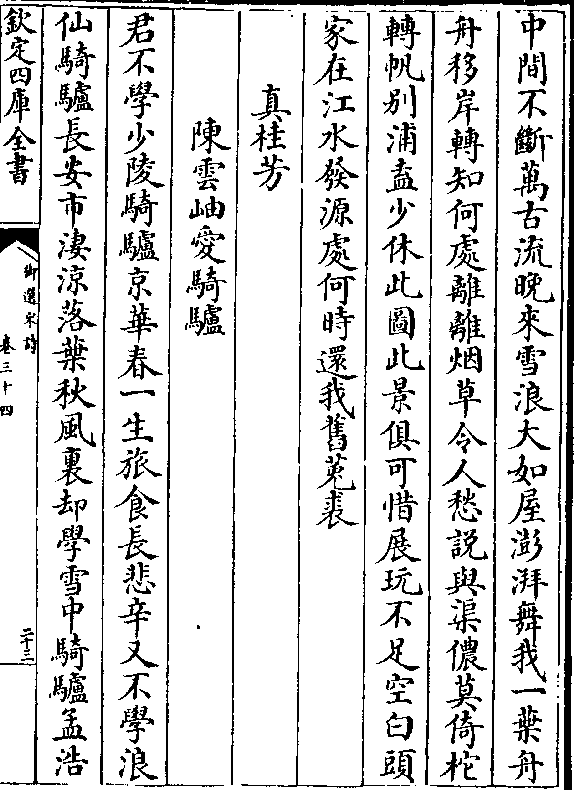 中間不斷萬古流晚來雪浪大如屋澎湃舞我一葉舟
舟移岸轉知何處離離烟草令人愁說與渠儂莫倚柁
轉帆别浦盍少休此圖此景俱可惜展玩不足空白頭
家在江水發源處何時還我舊菟裘
真桂芳
陳雲岫愛騎驢
君不學少陵騎驢京華春一生旅食長悲辛又不學浪
仙騎驢長安市淒涼落葉秋風裏却學雪中騎驢孟浩
欽定四庫全書
御選宋詩
卷三十四
二十三